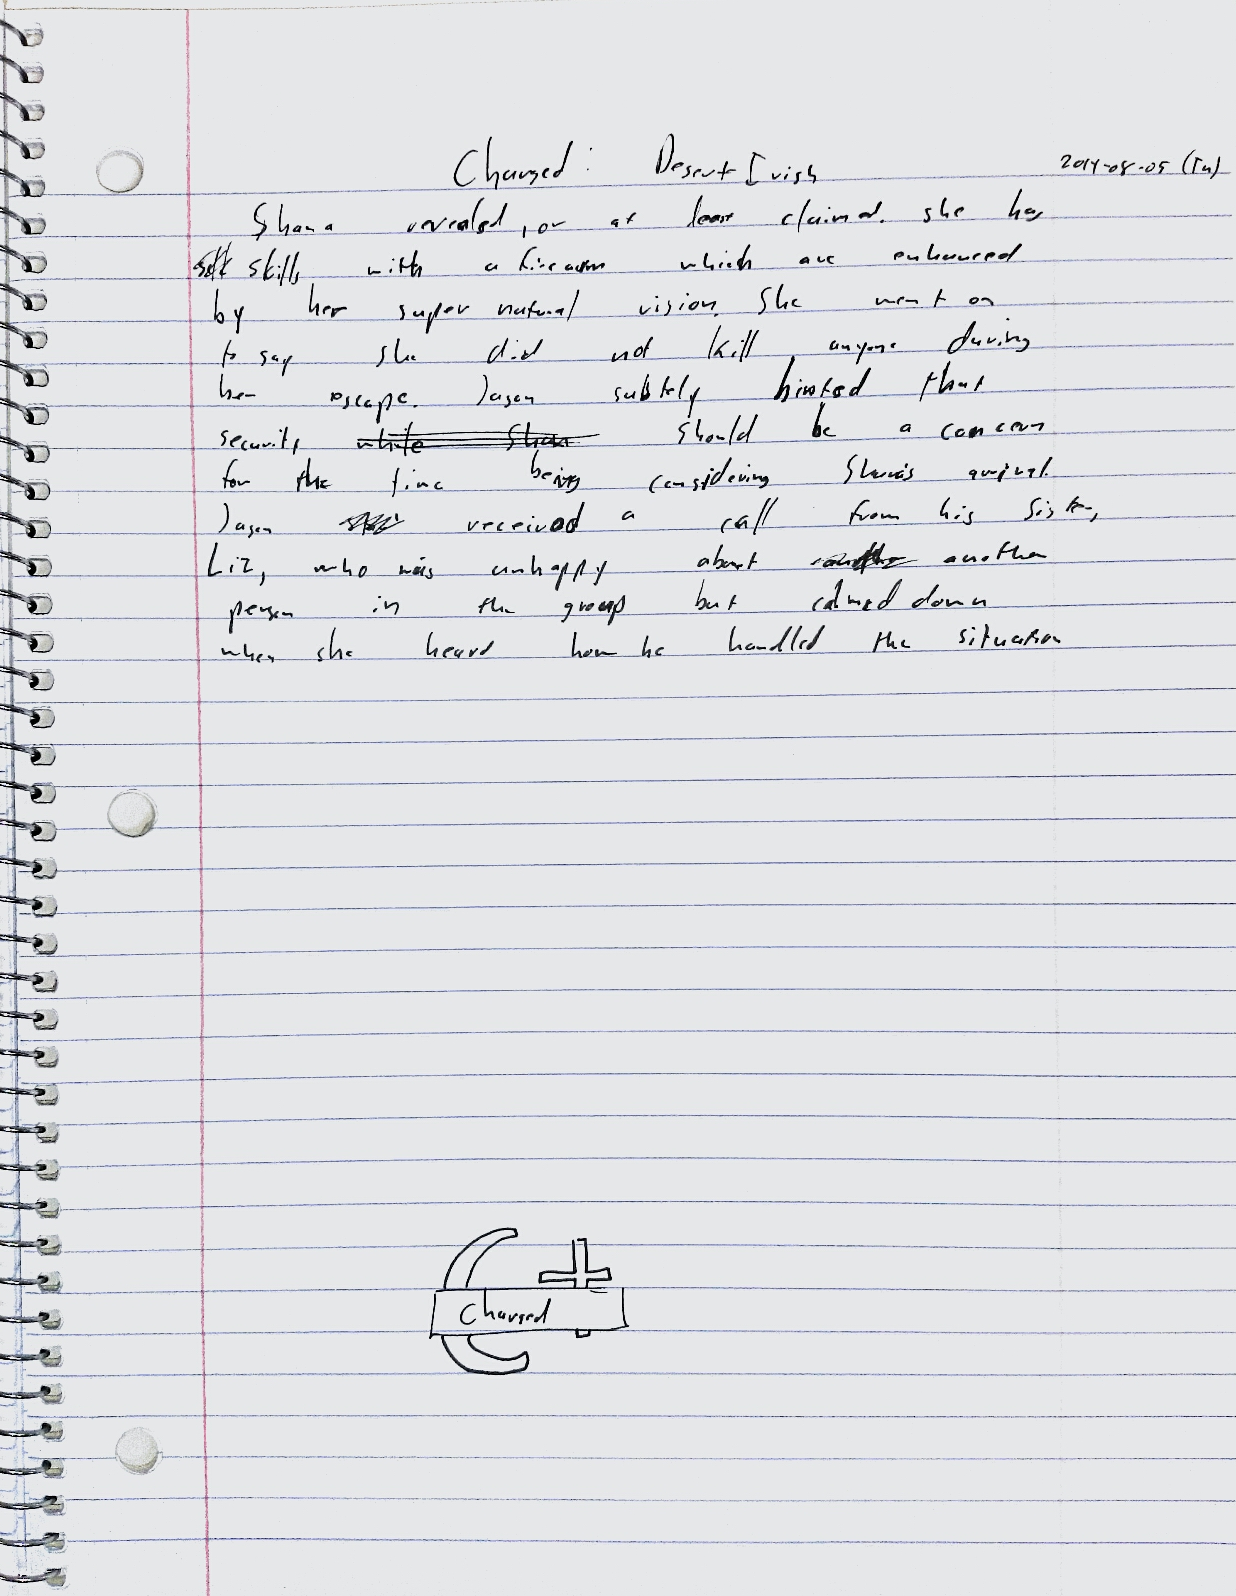 Charged: Desert Irish 2014-08-05 (Tu)
Shana revealed, or at least claimed. she has
skills with a firearm which are enhanced
by her super natural vision. She went on
to say she did not kill anyone during
her escape. Jason subtely hinted that
security while Shan should be a concern
for the time being considering Shana's arrival.
Jason received a call from his sister,
Liz, who was unhappy about another
person in the group but calmed down
when she heard how he handled the situation
Charged